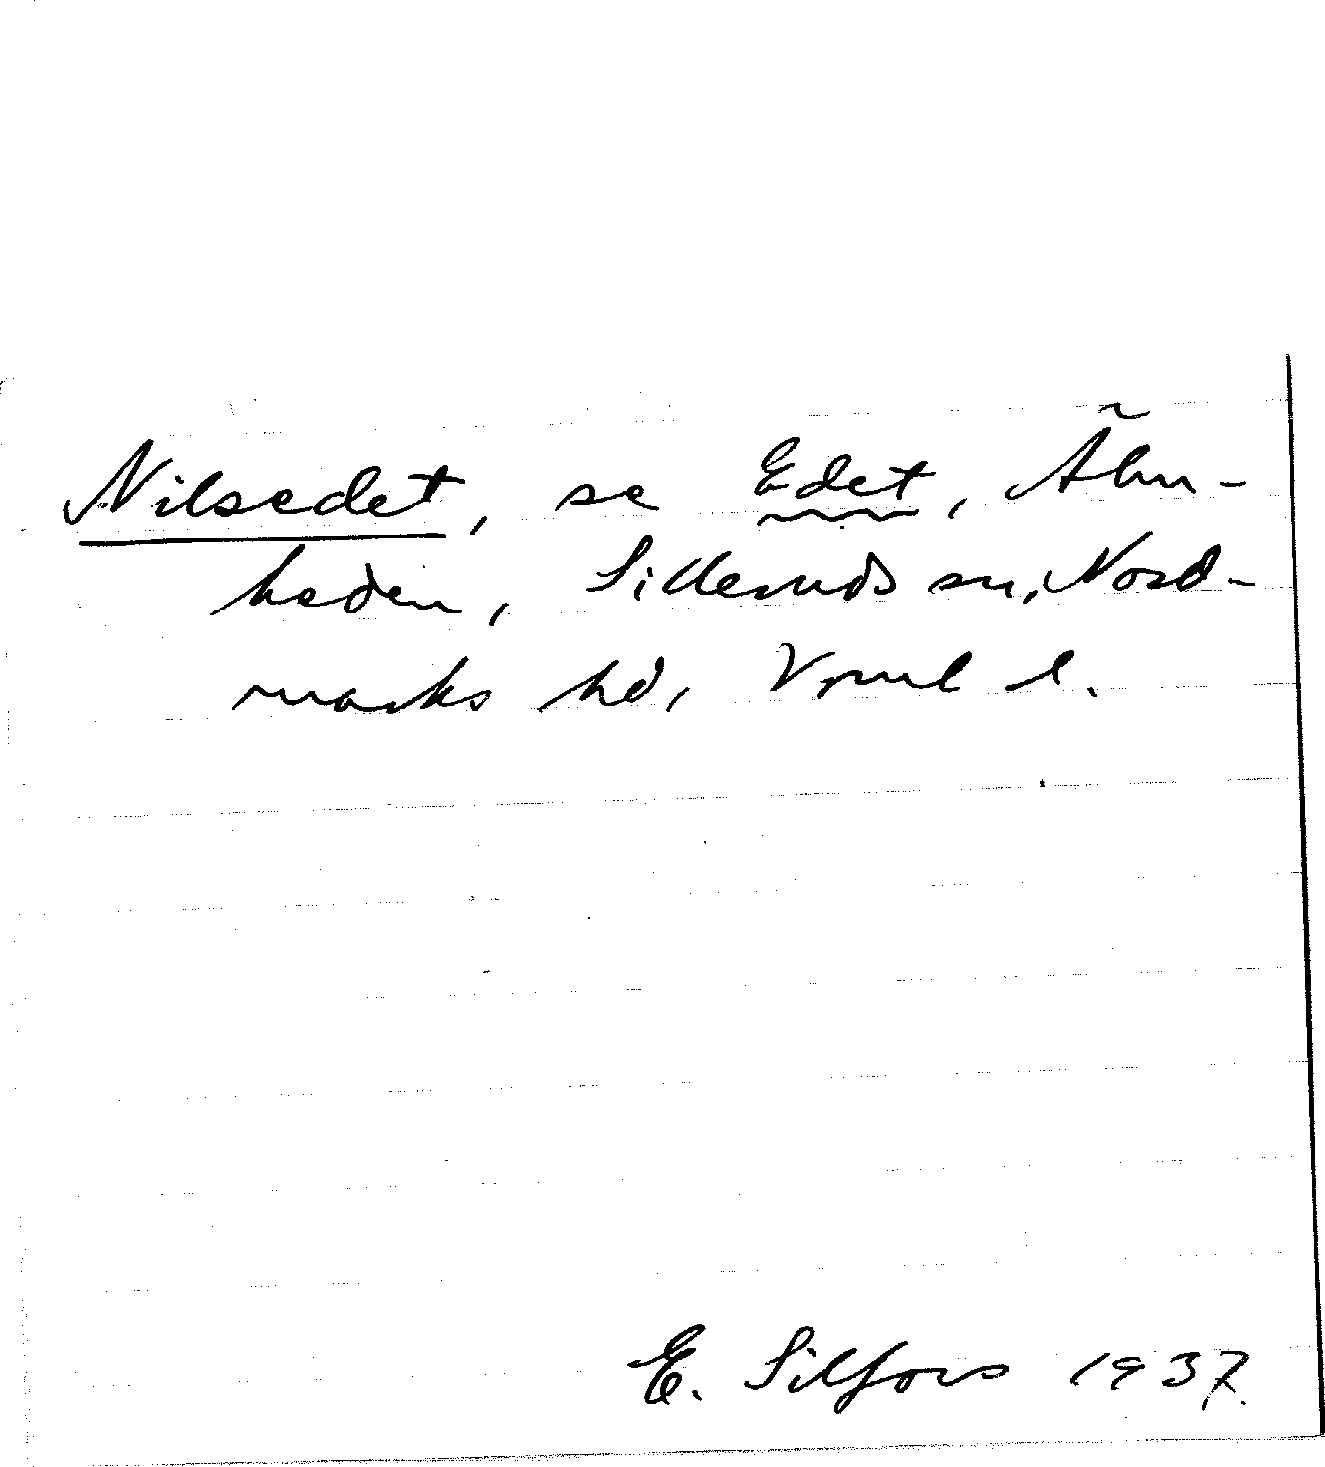 Nilsedet, se Edet, Älm-
heden, Silleruds sn, Nord-
marks hd, Vrml l.
E. Silfors 1937.